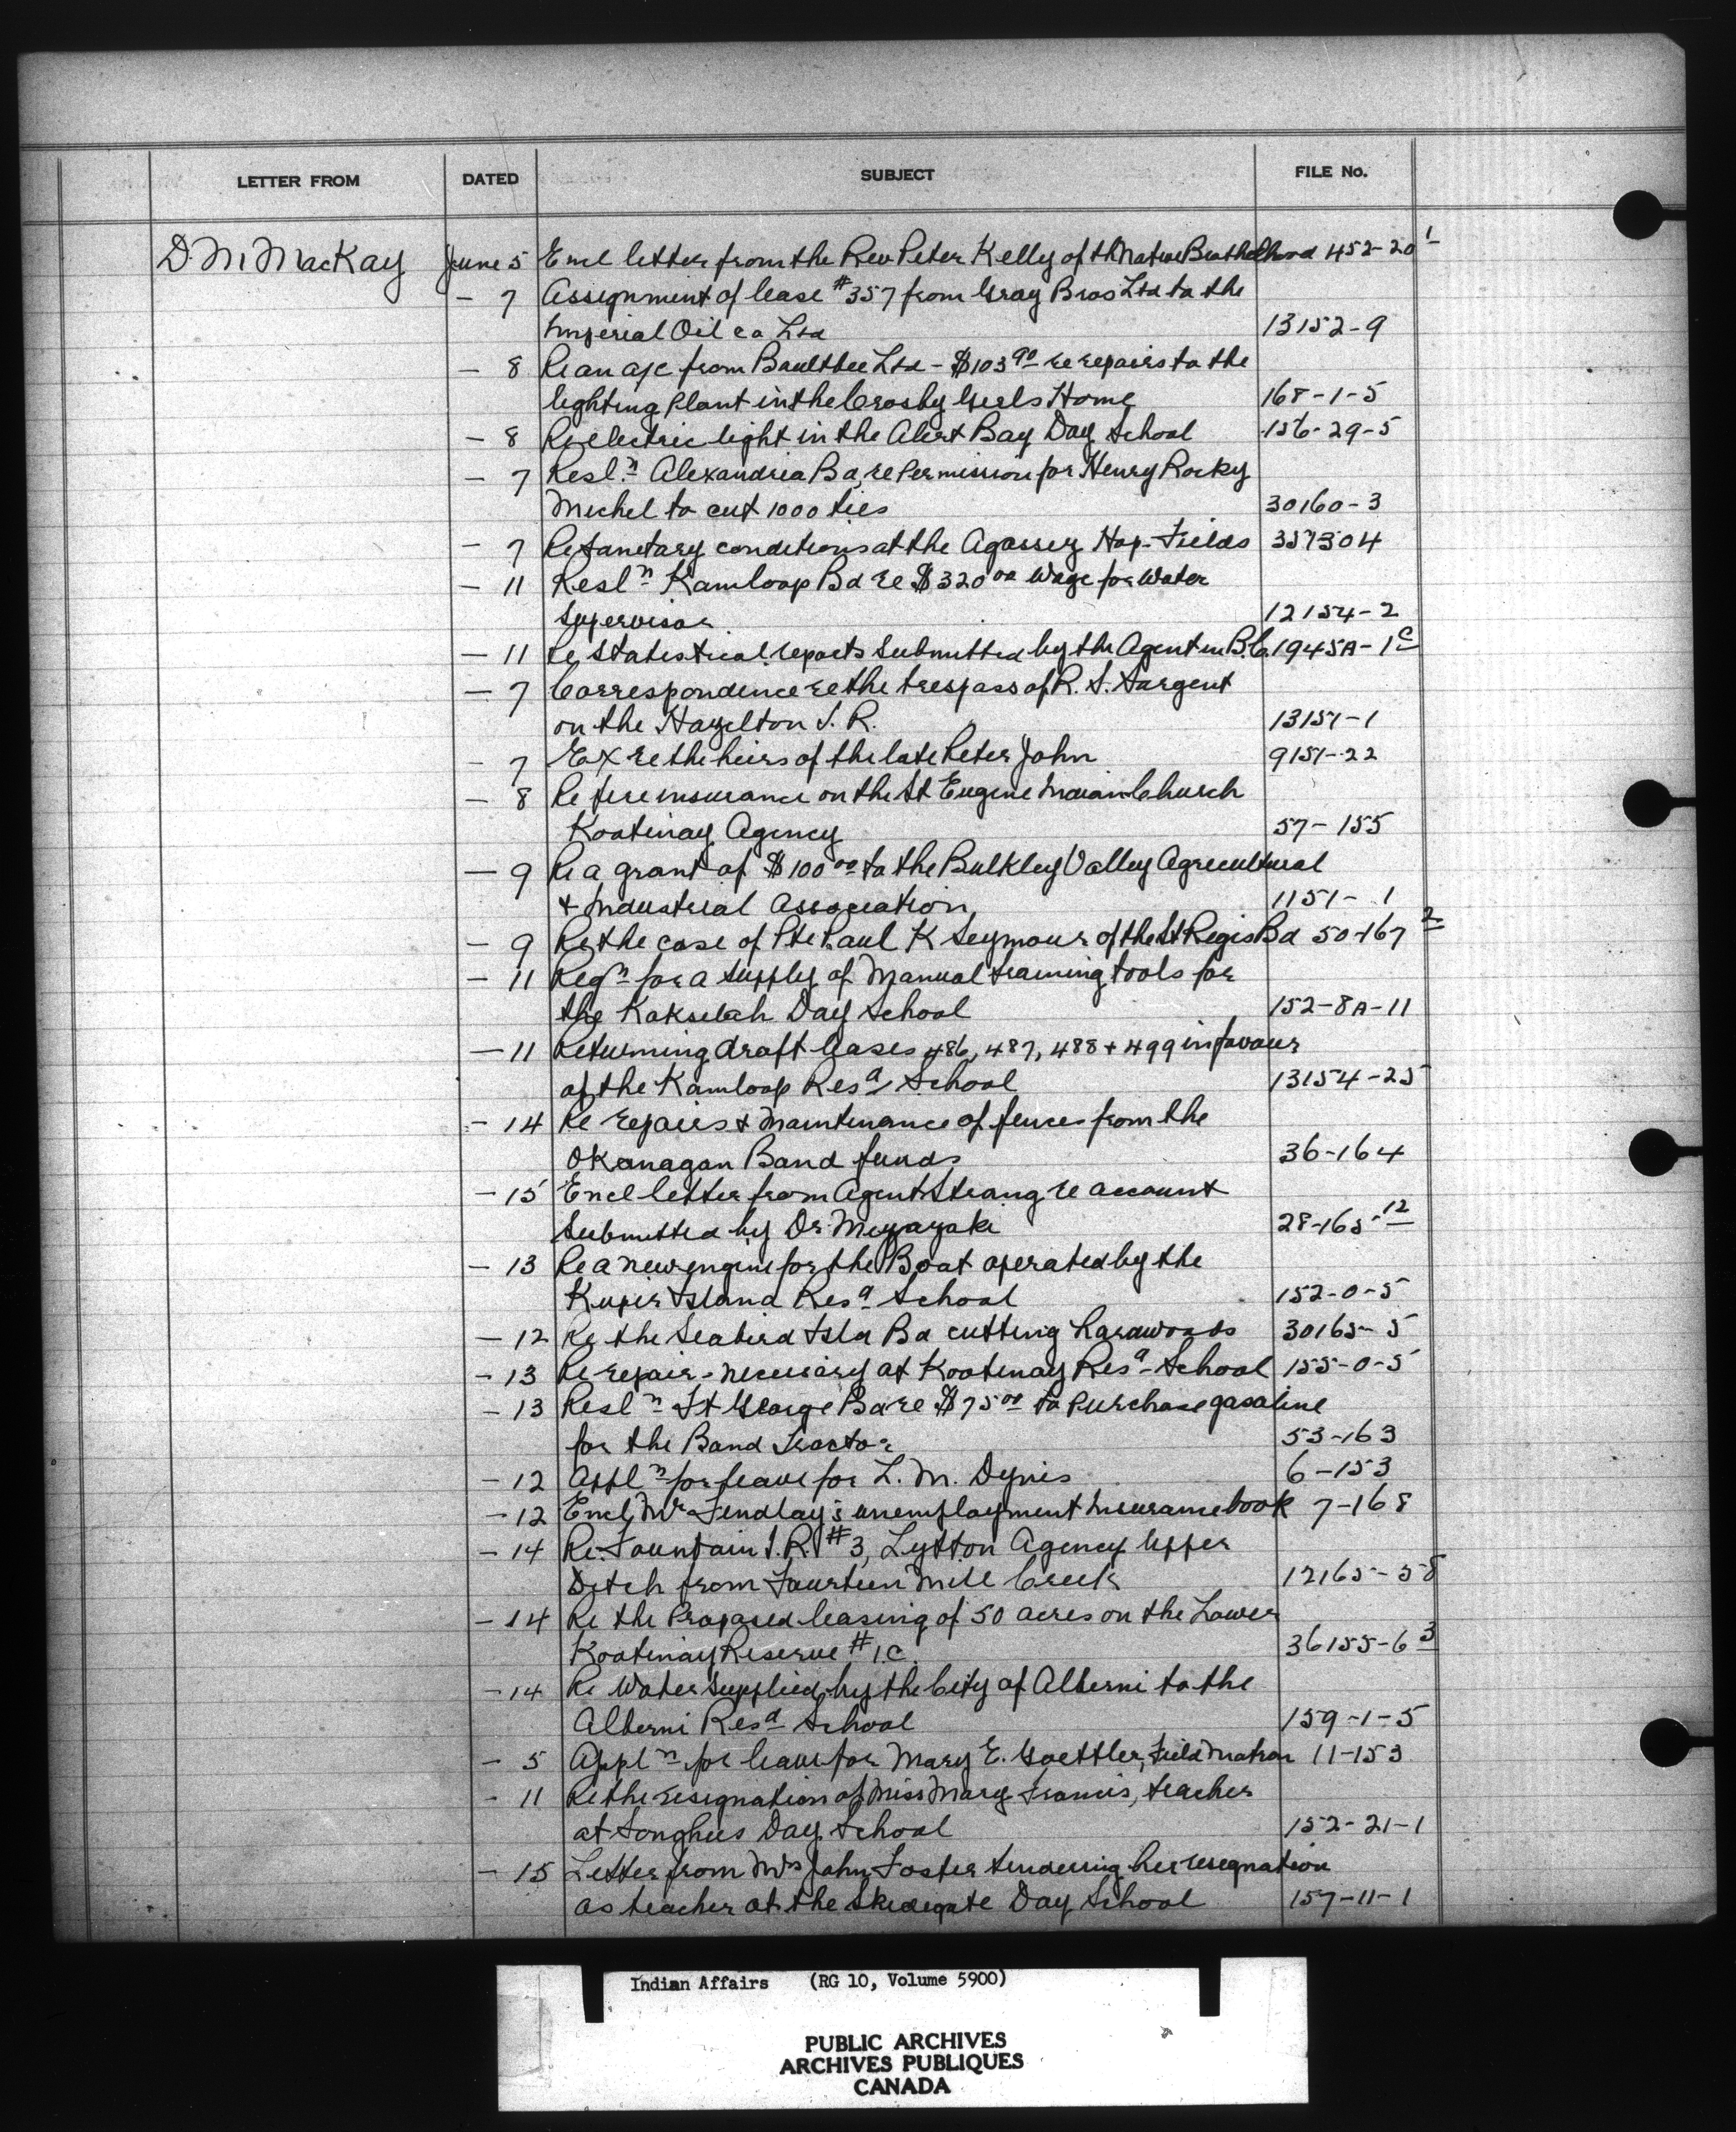 LETTER FROM DATED SUBJECT FILE No.
D. M. MacKay June 5 Encl letter from the Rev Peter Kelly of th Native Brotherhood 452-20 1
- 7 Assignment of lease #357 from Gray Bros Ltd to the
Imperial Oil co Ltd 13152-9
- 8 Re an a/c from Boultbee Ltd - $103 90 re repairs to the
lighting Plant in the Crosby Girls Home 168-1-5
- 8 Re electric light in the Alert Bay Day School 156-29-5
- 7 Resl n Alexandria Bd, re Permission for Henry Rocky
Michel to cut 1000 ties 30160-3
- 7 Re Sanetary conditions at the Agassiz Hop-Fields 357304
- 11 Resl n Kamloop Bd re $320 00 Wage for Water
Supervisor 12154-2
- 11 Re Statistical reports Submitted by the Agent in B.C. 1945A-1 C
- 7 Correspondence re the trespass of R. S. Sargent
on the Hazelton I. R. 13151-1
- 7 Ex re the heirs of the late Peter John 9151-22
- 8 Re fire insurance on the St Eugene Indian Church
Kootenay Agency 57-155
- 9 Re a grant of $100 00 to the Bulkley Valley Agricultural
+ Industrial Association 1151-1
- 9 Re the case of Pte Paul K Seymour of the St Regis Bd 50-167 2
- 11 Reqn for a supply of Manual training tools for
the Koksilah Day School 152-8A-11
- 11 Returning draft leases 486, 487, 488 + 499 in favour
of the Kamloop Resd School 13154-25
- 14 Re repairs + Maintenance of fences from the
Okanagan Band funds 36-164
- 15 Encl letter from Agent Strang re account
Submitted by Dr. Miyazaki 28-165-12
- 13 Re a new engine for the Boat operated by the
Kuper Island Resd School 152-0-5
- 12 Re the Seabird Isld Bd cutting hardwoods 30165-5
- 13 Re repairs necessary at Kootenay Resd School 155-0-5
- 13 Resl n Ft George Bd re $75 00 to Purchase gasoline
for the Band Tractor 53-163
- 12 Appl n for leave for L. M. Dynes 6-153
- 12 Encl Mr Findlay's unemployment Insurance book 7-168
- 14 Re. Fountain I.R. #3, Lytton Agency Upper
Ditch from Fourteen Mile Creek 12165-58
- 14 Re the Proposed leasing of 50 acres on the Lower
Kootenay Reserve #1C. 36155-6 3
- 14 Re Water supplied by the City of Alberni to the
Alberni Resd School 159-1-5
- 5 Appl n for leave for Mary E. Goettler, Field Matron 11-153
- 11 Re the resignation of Miss Mary Francis, teacher
at Songhees Day School 152-21-1
- 15 Letter from Mrs John Foster tendering her resignation
as teacher at the Skidegate Day School 157-11-1
Indian Affairs (RG 10, Volume 5900)
PUBLIC ARCHIVES
ARCHIVES PUBLIQUES
CANADA